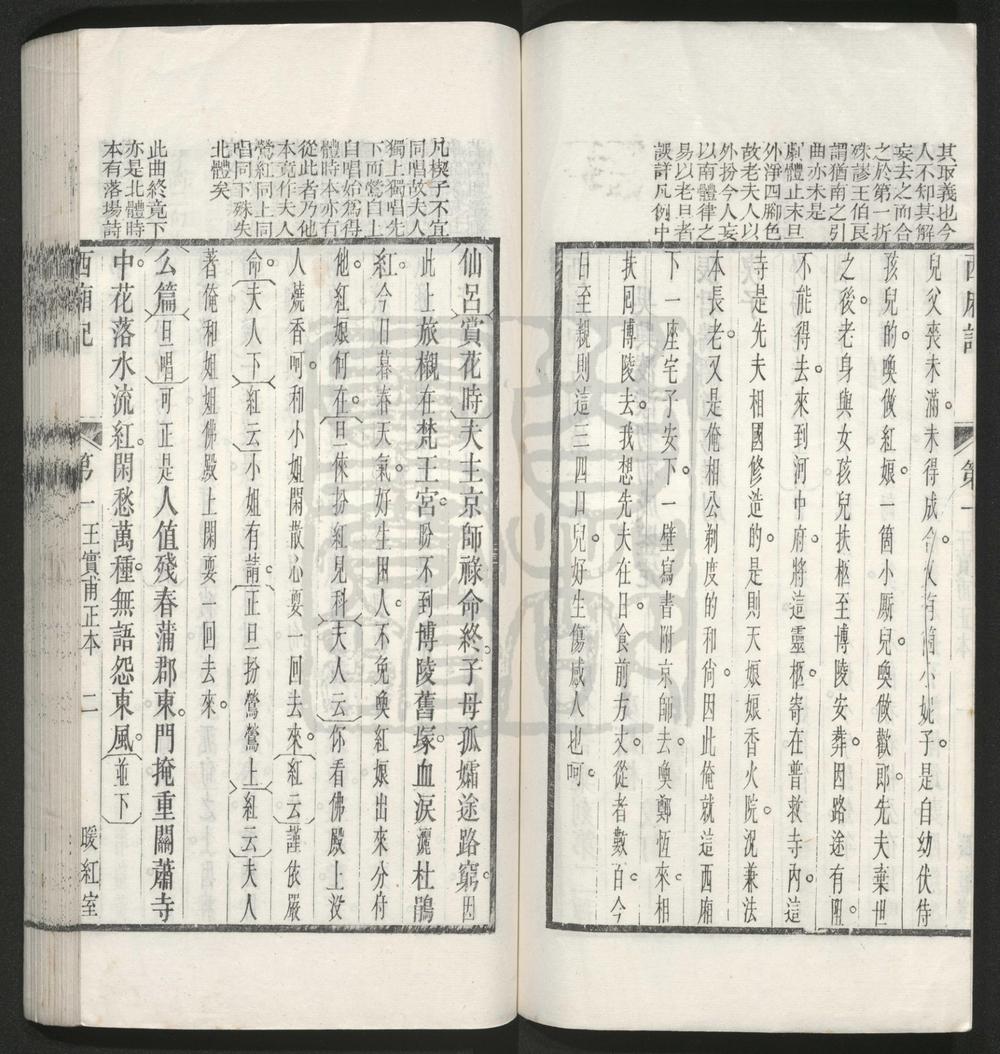 其取義也今
人不知其解
妄去之而合
之於第一折
殊謬王伯良
謂猶南之引
曲亦未是
劇體止末旦
外淨四腳色
故老夫人以
外扮今人妄
以南體律之
易以老旦者
誤詳凡例中
西廂記
第一
兒父喪未滿未得成合又有箇小妮子是自幼伏侍
孩兒的喚做紅娘一箇小厮兒喚做歡郎先夫棄世
之後老身與女孩兒扶柩至博陵安葬因路途有阻
不能得去來到河中府將這靈柩寄在普救寺內這
寺是先夫相國修造的是則天娘娘香火院況兼法
本長老又是俺相公剃度的和尚因此俺就這西廂
下一座宅子安下一壁寫書附京師去喚鄭恆來相
扶回博陵去我想先夫在日食前方丈從者數百今
日至親則這三四口兒好生傷感人也呵
凡楔子不宜
同唱故夫人
獨上獨唱先
下而鶯自上
自唱始為得
體時本亦有
從此者乃他
本竟作夫人
鶯紅同上同
唱同下殊失
北體矣
此曲終竟下
亦是北體時
本有落場詩
仙呂賞花時夫主京師祿命終子母孤孀途路窮因
此上旅櫬在梵王宮盼不到博陵舊塚血淚灑杜鵑
紅今日暮春天氣好生困人不免喚紅娘出來分付
他紅娘何在旦倈扮紅見科夫人云你看佛殿上沒
人燒香呵和小姐閑散心耍一回去來紅云謹依嚴
命夫人下紅云小姐有請正旦扮鶯鶯上紅云夫人
著俺和姐姐佛殿上閑耍一回去來
幺篇旦唱可正是人值殘春蒲郡東門掩重關蕭寺
中花落水流紅閑愁萬種無語怨東風並下
西廂記
第一
王實甫正本
二
暖紅室